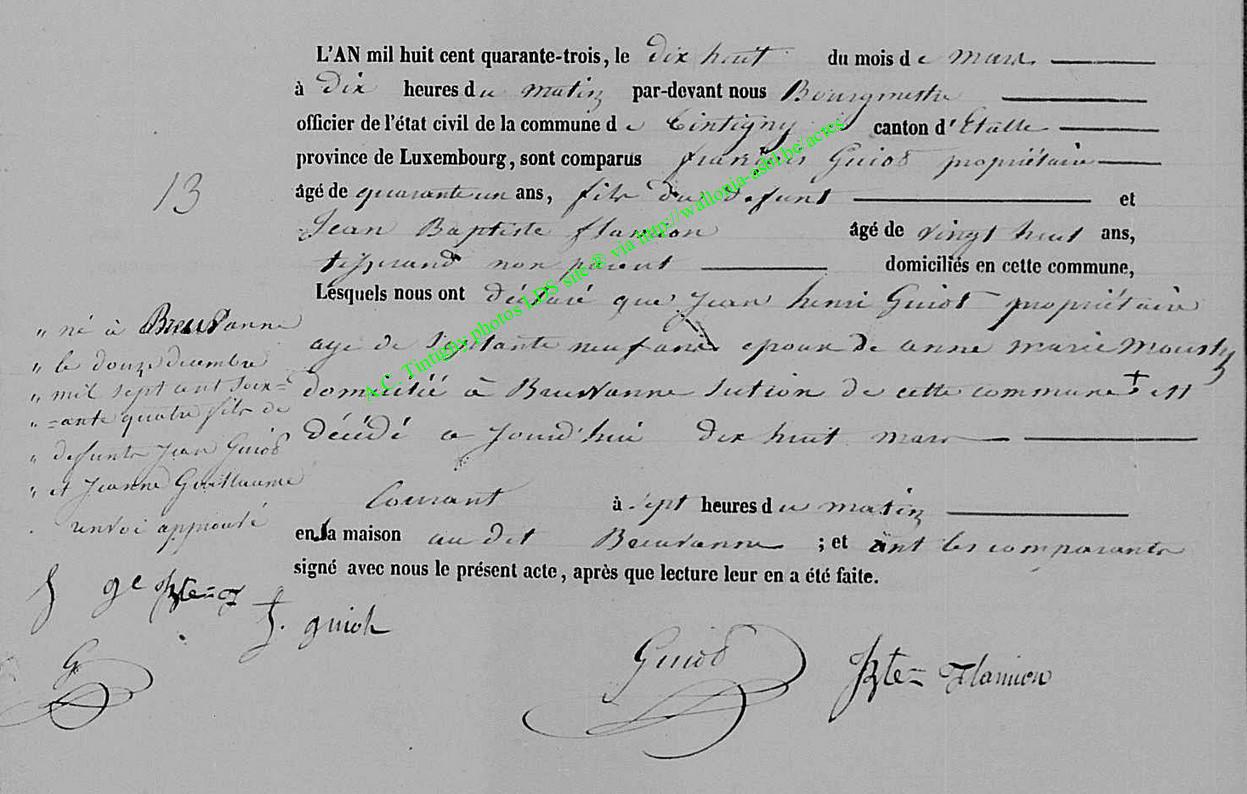 L'AN mil huit cent quarante-trois, le dix huit du mois de mars
à Dix heures du matin par-devant nous Bourgmestre
officier de l'état civil de la commune de Tintigny canton d'Etalle
province de Luxembourg, sont comparus françois Guiot propriétaire
âgé de quarante un ans, fils du defunt et
Jean Baptiste flamion âgé de vingt huit ans,
tisserand non parent domiciliés en cette commune,
Lesquels nous ont déclaré que Jean henri Guiot propriétaire
agé de septante neuf ans epoux de anne marie Mousty
domicilié à Breuvanne section de cette commune + est
décédé ce jourd'hui dix huit mars
Courant à sept heures du matin
en la maison au dit Breuvanne ; et ont les comparants
signé avec nous le présent acte, après que lecture leur en a été faite.
13
" né à Breuvanne
" le douze decembre
" mil sept cent soix=
" =ante quatre fils de
" defunts Jean Guiot
" et Jeanne Guillaume
. renvoi approuvé
f g Bte=
f. guiot
G
Guiot
Bte= flamion
A.C. Tintigny photos LDS site® via http://wallonia-asbl.be/actes